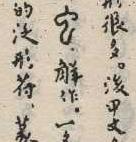 形很多。後甲文
它。解作。一
的泛形符、義